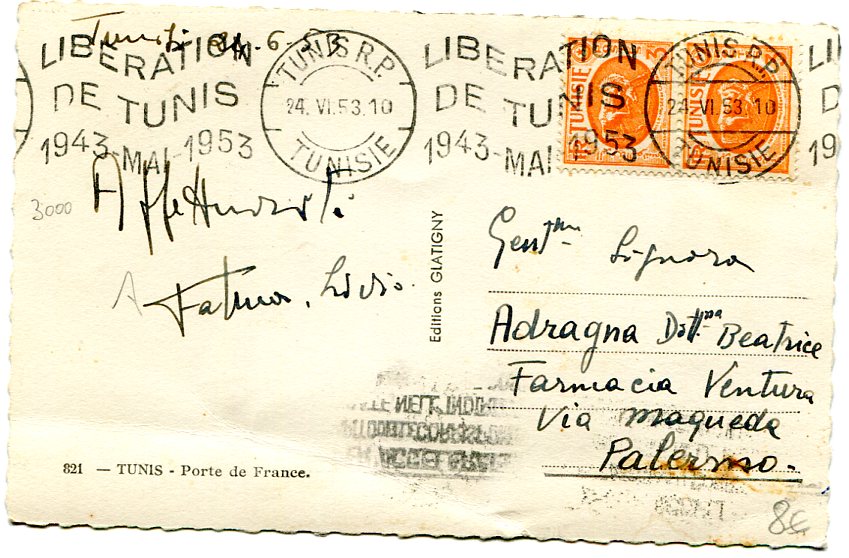 Tunisi 24-6-53
LIBERATION
DE TUNIS
1943-MAI-1953
TUNIS R.P.
24. VI. 53. 10
TUNISIE
LIBERATION
DE TUNIS
1943-MAI-1953
TUNIS R.P.
24 VI. 53. 10
TUNISIE
LI
D
19
TUNISIE
TUNISIE
3000
Affettuosità
A
Fatma, Livio.
Editions GLATIGNY
Gent.ma Signora
Adragna Dott.ssa Beatrice
Farmacia Ventura
Via Maqueda
Palermo.
821 — TUNIS - Porte de France.
8€